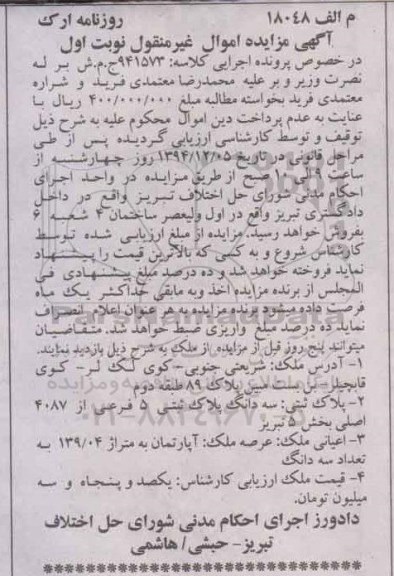 م الف ۱۸۰۴۸ روزنامه ارک
آگهی مزایده اموال غیرمنقول نوبت اول
در خصوص پرونده اجرایی کلاسه: ۹۴۱۵۷۳ح.م.ش بر له
نصرت وزیر و بر علیه محمدرضا معتمدی فرید و شراره
معتمدی فرید بخواسته مطالبه مبلغ ۴۰۰/۰۰۰/۰۰۰ ریال با
عنایت به عدم پرداخت دین اموال محکوم علیه به شرح ذیل
توقیف و توسط کارشناسی ارزیابی گردیده پس از طی
مراحل قانونی در تاریخ ۱۳۹۴/۱۲/۰۵ روز چهارشنبه از
ساعت ۹ الی ۱۰ صبح از طریق مزایده در واحد اجرای
احکام مدنی شورای حل اختلاف تبریز واقع در داخل
دادگستری تبریز واقع در اول ولیعصر ساختمان ۴ شعبه ۶
بفروش خواهد رسید. مزایده از مبلغ ارزیابی شده توسط
کارشناس شروع و به کسی که بالاترین قیمت را پیشنهاد
نماید فروخته خواهد شد و ده درصد مبلغ پیشنهادی فی
المجلس از برنده مزایده اخذ وبه مابقی حداکثر یک ماه
فرصت داده میشود برنده مزایده به هر عنوان اعلام انصراف
نماید ده درصد مبلغ واریزی ضبط خواهد شد. متقاضیان
میتوانند پنج روز قبل از مزایده از ملک به شرح ذیل بازدید نمایند.
۱- آدرس ملک: شریعتی جنوبی- کوی لک لر- کوی
قابچیلر- بن بست مبین پلاک ۸۹ طبقه دوم
۲- پلاک ثبتی: سه دانگ پلاک ثبتی ۵ فرعی از ۴۰۸۷
اصلی بخش ۵ تبریز
۳- اعیانی ملک: عرصه ملک: آپارتمان به متراژ ۱۳۹/۰۴ به
تعداد سه دانگ
۴- قیمت ملک ارزیابی کارشناس: یکصد و پنجاه و سه
میلیون تومان.
دادورز اجرای احکام مدنی شورای حل اختلاف
تبریز- حبشی/ هاشمی